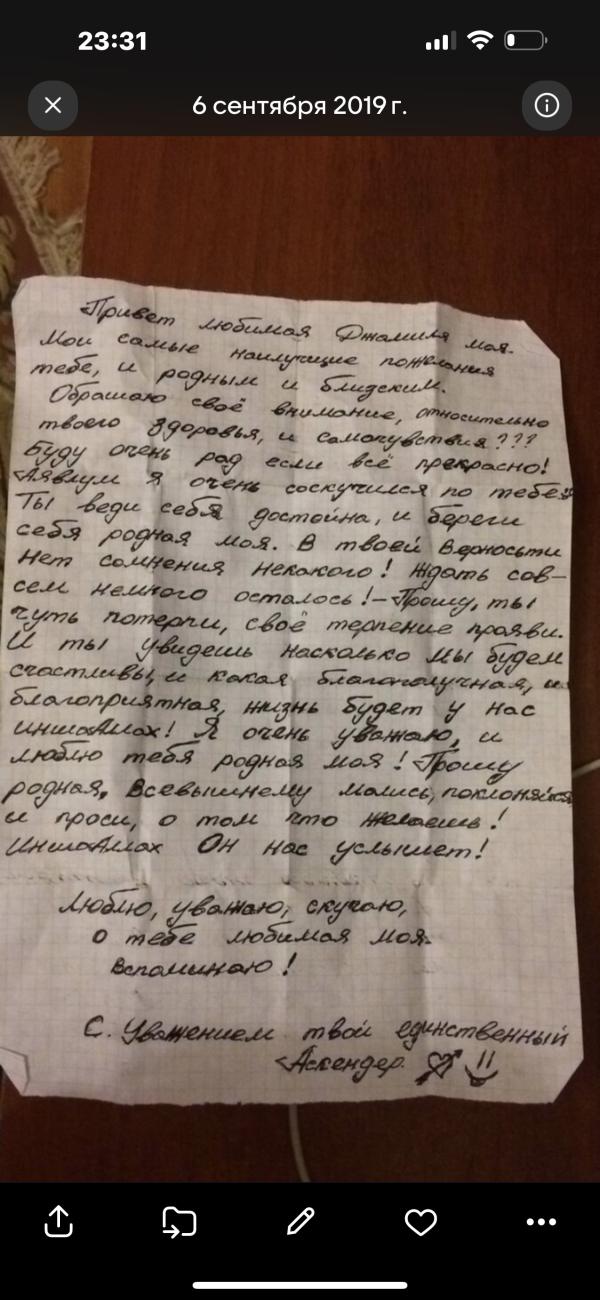 23:31
6 сентября 2019 г.
Привет любимая Джамиля моя.
Мои самые наилучшие пожелания
тебе, и родным и близским.
Обращаю своё внимание, относительно
твоего здоровья, и самочувствия???
Буду очень рад если всё прекрасно!
Аявлум я очень соскучился по тебе!
Ты веди себя достойна, и береги
себя родная моя. В твоей Верносьти
нет сомнения некакого! Ждать сов-
сем немного осталось! - Прошу, ты
чуть потерпи, своё терпение прояви.
И ты увидешь насколько мы будем
счастливы, и какая благополучная, и
благоприятная, жизнь будет у нас
ИншаАллах! Я очень уважаю, и
люблю тебя родная моя! Прошу
родная, Всевышнему молись, поклоняйся
и проси, о том что желаешь!
ИншаАллах Он нас услышет!
Люблю, уважаю, скучаю,
о тебе любимая моя.
Вспоминаю!
С. Уважением твой единственный
Аскендер.